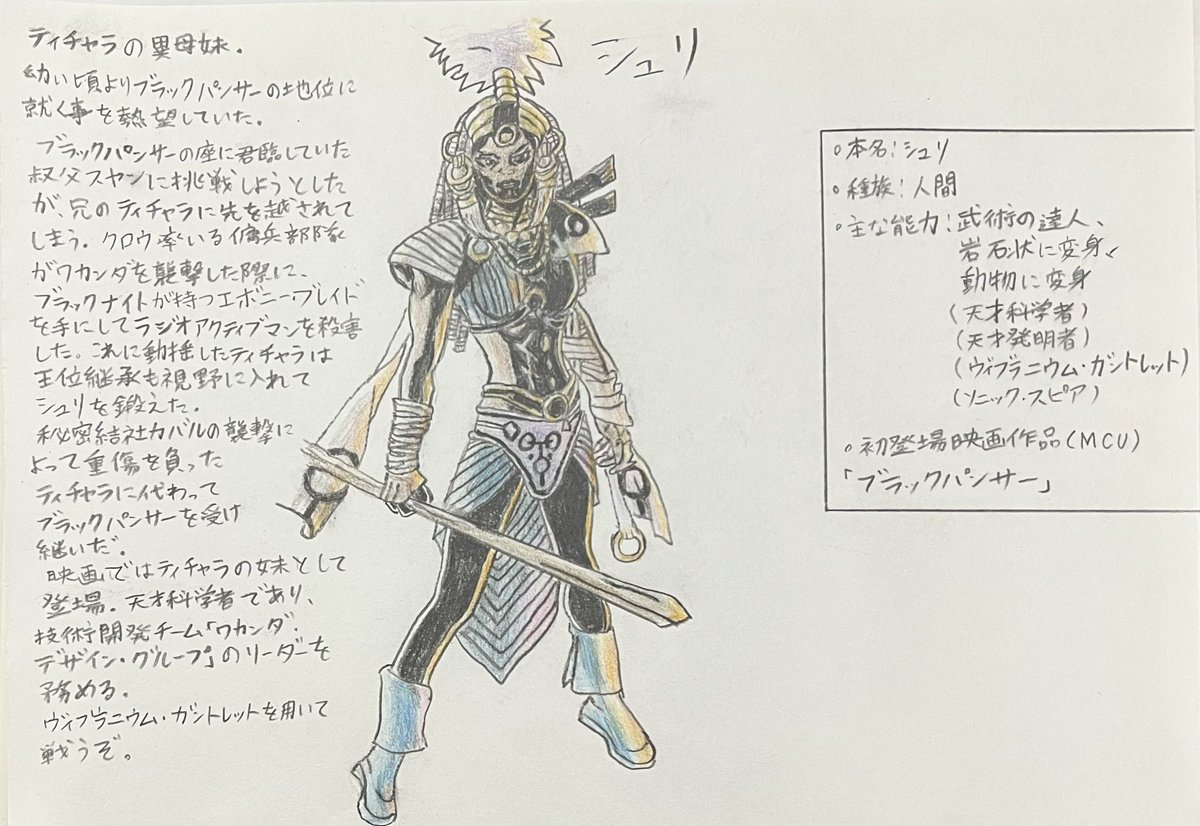 ティチャラの異母妹.
幼い頃よりブラックパンサーの地位に
就く事を熱望していた。
ブラックパンサーの座に君臨していた
叔父スヤンに挑戦しようとした
が、兄のティチャラに先を越されて
しまう。クロウ率いる傭兵部隊
がワカンダを襲撃した際に、
ブラックナイトが持つエボニー・ブレイド
を手にしてラジオアクティブマンを殺害
した。これに動揺したティチャラは
王位継承も視野に入れて
シュリを鍛えた。
秘密結社カバルの襲撃に
よって重傷を負った
ティチャラに代わって
ブラックパンサーを受け
継いだ。
映画ではティチャラの妹として
登場.天才科学者であり、
技術開発チーム「ワカンダ・
デザイン・グループ」のリーダーを
務める.
ヴィブラニウム・ガントレットを用いて
戦うぞ。
シュリ
○本名:シュリ
○種族:人間
○主な能力:武術の達人、
岩石状に変身、
動物に変身
(天才科学者)
(天才発明者)
(ヴィブラニウム・ガントレット)
(ソニック・スピア)
○初登場映画作品(MCU)
「ブラックパンサー」